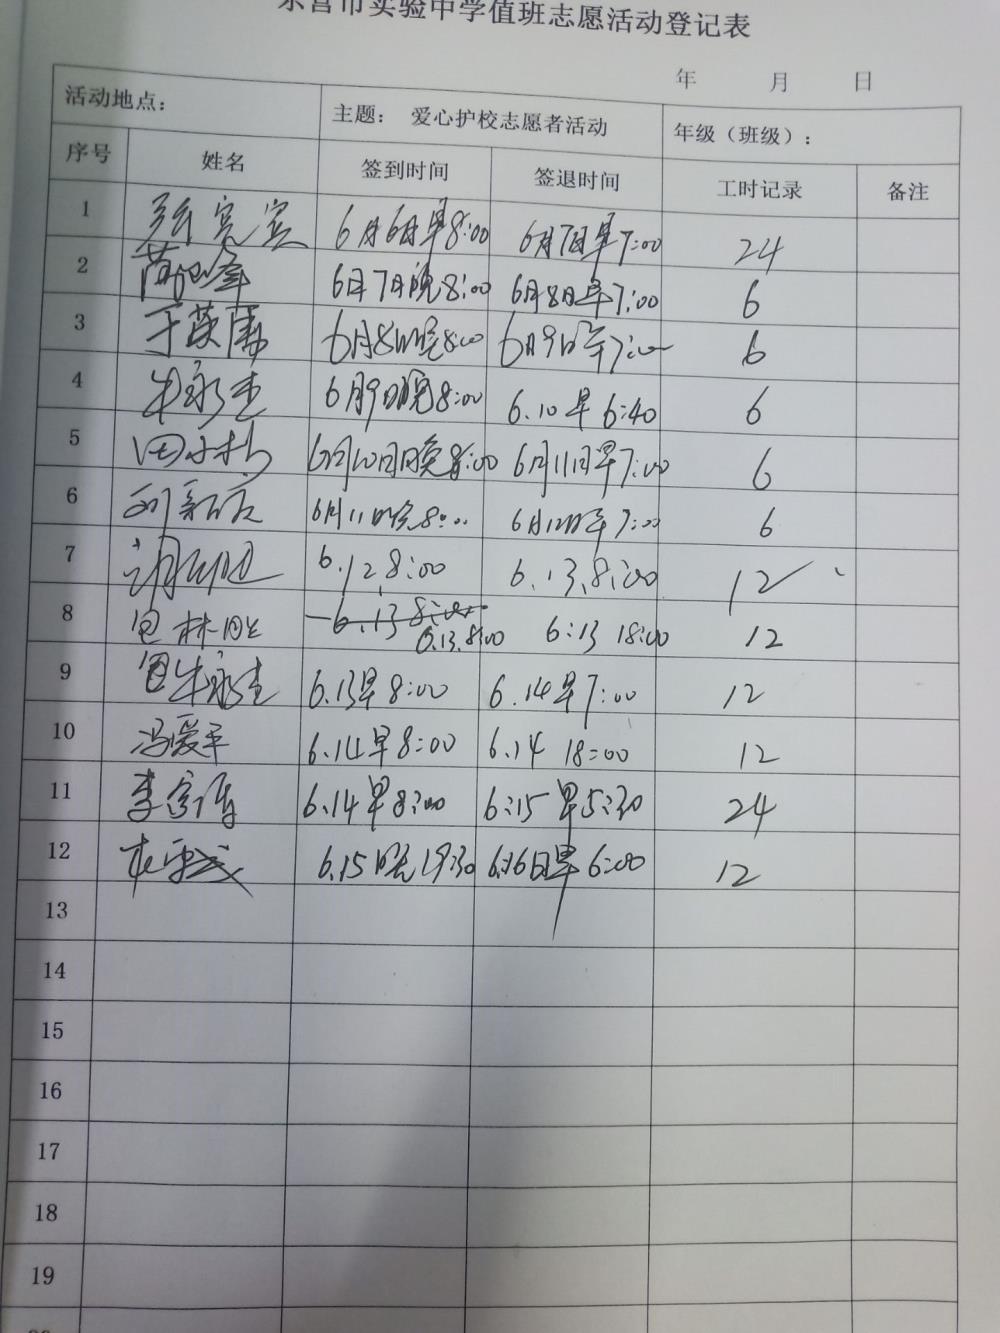 东营市实验中学值班志愿活动登记表
年 月 日
活动地点： 主题： 爱心护校志愿者活动 年级（班级）：
序号 姓名 签到时间 签退时间 工时记录 备注
1 6月6日早8:00 6月7日早7:00 24
2 6月7日晚8:00 6月8日早7:00 6
3 于 6月8日晚8:00 6月9日早7:00 6
4 牛永杰 6月9日晚8:00 6.10早6:40 6
5 田 6月10日晚8:00 6月11日早7:00 6
6 刘新 6月11日晚8:00 6月12日早7:00 6
7 6.12,8:00 6.13,8:00 12
8 林 6.13 8:00 6.13.8:00 6:13 18:00 12
9 牛永杰 6.13早8:00 6.14早7:00 12
10 冯爱平 6.14早8:00 6.14 18:00 12
11 李 6.14早8:00 6:15早5:30 24
12 6.15晚19:30 6.16日早6:00 12
13
14
15
16
17
18
19